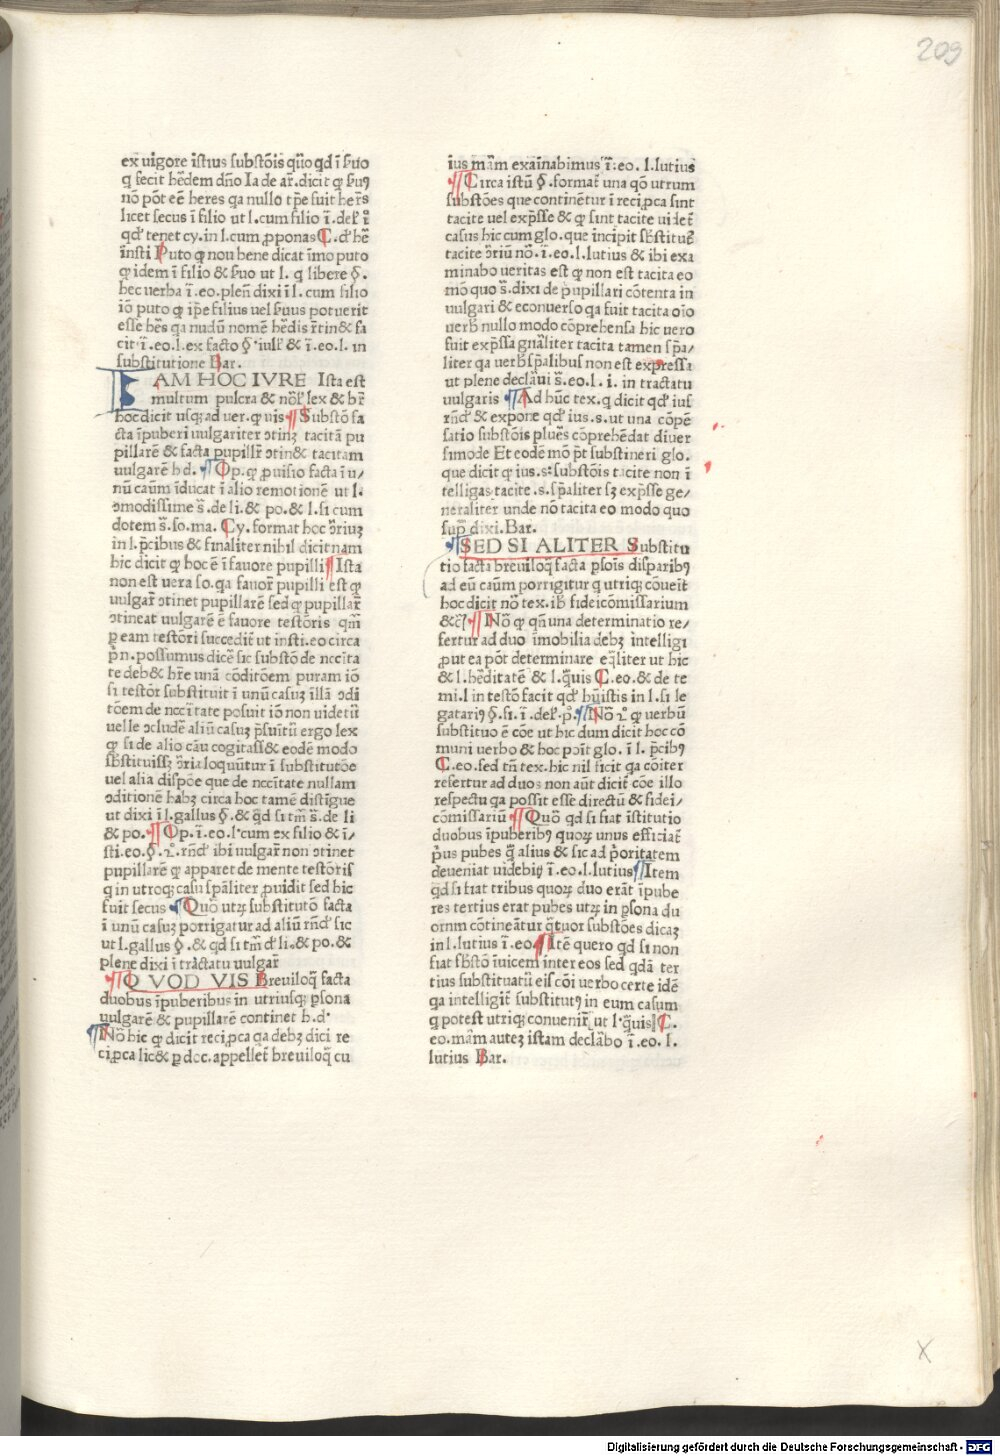 209
ex uigore istius substōis qñо qd ī ẜuo
q fecit hēdem dño Ia de ar. dicit ꝙ ẜuꝯ
nō pōt eē heres qa nullo tp̄e fuit her̄s
licet secus ī filio ut l. cum filio ī. de
qd tenet cy. in l. cum ꝓponas C. d hē
īnsti Puto ꝙ nou bene dicat īmo puto
ꝙ idem ī filio & ẜuo ut l. q libere §.
hec uerba ī. eo. plen̄ dixi ī l. cum filio
iō puto ꝙ ip̄e filius uel ẜuus potuerit
esse hēs qa nudū nomē hēdis
cit. ī. eo. l. ex facto §. & ī. eo. l. in
substitutione Bar.
IAM HOC IVRE Ista est
multum pulcra & lex &
hoc dicit usqꝫ ad uer. ꝙ uis ¶ Substō fa
cta īpuberi uulgariter ↄtinꝫ tacitā pu
pillarē & facta pupillr̄ ↄtin& tacitam
uulgarē h d. ¶ Op. ꝙ ꝓuisio facta ī u/
nū caūm īducat ī alio remotionē ut l.
ↄmodissime s̄. de li. & po. & l. si cum
dotem s̄. so. ma. Cy. format hoc ↄ̄riuꝫ
in l. p̄cibus & finaliter nihil dicit nam
hic dicit ꝙ hoc ē ī fauore pupilli ¶ Ista
non est uera so. qa fauor̄ pupilli est ꝙ
uulgar̄ ↄtinet pupillarē sed ꝙ pupillar̄
ↄtineat uulgarē ē fauore testōris qm̄
ꝑ eam testōri succedit̄ ut insti. eo circa
p̄n. possumus dicē sic substō de nccīta
te deb& hr̄e unā cōditōem puram iō
si testōr substituit ī unū casuꝫ illā ↄdi
tōem de nccītate posuit iō non uidetū
uelle ↄcludē aliū casuꝫ p̄suītū ergo lex
ꝙ si de alio cāu cogitass& eodē modo
sb̄stituissꝫ loquūtur ī substitutōe
uel alia dispōe que de nccītate nullam
ↄditionē habꝫ circa hoc tamē distīgue
ut dixi ī l. gallus §. & qd si tm̄ s̄. de li
& po. ¶ Op. ī. eo. l. cum ex filio & ī/
sti. eo. §. 2. rn̄d ibi uulgar̄ non ↄtinet
pupillarē ꝙ apparet de mente testōris
q in utroqꝫ casu sp̄aliter ꝓuidit sed hic
fuit secus ¶ Quō utꝝ substitutō facta
ī unū casuꝫ porrigatur ad aliū rn̄d sic
ut l. gallus §. & qd si tm̄ d li. & po. &
plene dixi ī trāctatu uulgar̄
¶ QVOD VIS Breuiloq̄ facta
duobus īpuberibus in utriusqꝫ ꝑsona
uulgarē & pupillarē continet h. d.
¶ Nō hic ꝙ dicit reciꝓca qa debꝫ dici re
ciꝓca lic& ꝑ dcc. appellet̄ breuiloq̄ cu
ius mām examīnabimus ī. eo. l. lutius
¶ Circa istū §. format̄ una qō utrum
substōes que continētur ī reciꝓca sint
tacite uel exp̄sse & ꝙ sint tacite uidet̄
casus hic cum glo. que incipit
tacite ↄriū nō. ī. eo. l. lutius & ibi exa
minabo ueritas est ꝙ non est tacita eo
mō quo s̄. dixi de pupillari cōtenta in
uulgari & econuerso qa fuit tacita oīo
uerb nullo modo cōprehensa hic uero
fuit exp̄ssa gn̄aliter tacita tamen sp̄a/
liter qa uerb sp̄alibus non est expressa
ut plene declāui s̄. eo. l. i. in tractatu
uulgaris ¶ Ad hūc tex. q dicit qd ius
rn̄d & expone qd ius. s. ut una cōpē
satio substōis plues cōprehēdat diuer
simode Et eodē mō p̄t substineri glo.
que dicit ꝙ ius. s: substōis tacite non ī
telligas tacite .s. sp̄aliter sꝫ exp̄sse ge/
neraliter unde nō tacita eo modo quo
sup̄ dixi. Bar.
¶ SED SI ALITER Substitu
tio facta breuiloq̄ facta ꝑsōis disparibꝯ
ad eū caūm porrigitur q utriqꝫ cōueīt
hoc dicit nō tex. ib fideicōmissarium
¶ Nō ꝙ qn̄ una determinatio re/
fertur ad duo īmobilia debꝫ intelligi
ꝓut ea pōt determinare eq̄liter ut hic
& l. hēditatē & l. q̄uis C. eo. & de te
mi. l in testō facit qd hūistis in l. si le
gatariꝯ §. si. ī. de ¶ Nō 2. ꝙ uerbū
substituo ē cōe ut hic dum dicit hoc cō
muni uerbo & hoc poīt glo. ī l. p̄cibꝯ
C. eo. sed tn̄ tex. hic nil ficit qa cōiter
refertur ad duos non aūt dicit̄ cōe illo
respectu qa possit esse directū & fidei/
cōmissariū ¶ Quō qd si fiat istitutio
duobus īpuberibꝯ quoꝝ unus efficiat̄
p̄us pubes q̄ alius & sic ad p̄oritatem
deueniat uidebiꝫ ī. eo. l. lutius ¶ Item
qd si fiat tribus quoꝝ duo erāt īpube
res tertius erat pubes utꝝ in ꝑsona du
ornm cōtineātur q̄tuor substōes dicaꝫ
in l. lutius ī. eo ¶ Itē quero qd si non
fiat sb̄stō īuicem inter eos sed qdā ter
tius substituatū eis cōi uerbo certe idē
qa intelligit̄ substitutꝯ in eum casum
q potest utriqꝫ conuenir̄ ut l. q̄uis C.
eo. mām auteꝫ istam declābo ī. eo. l.
lutius Bar.
X
Digitalisierung gefördert durch die Deutsche Forschungsgemeinschaft - DFG